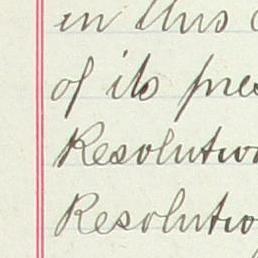 in this
of its pres
Resolution
Resolutio